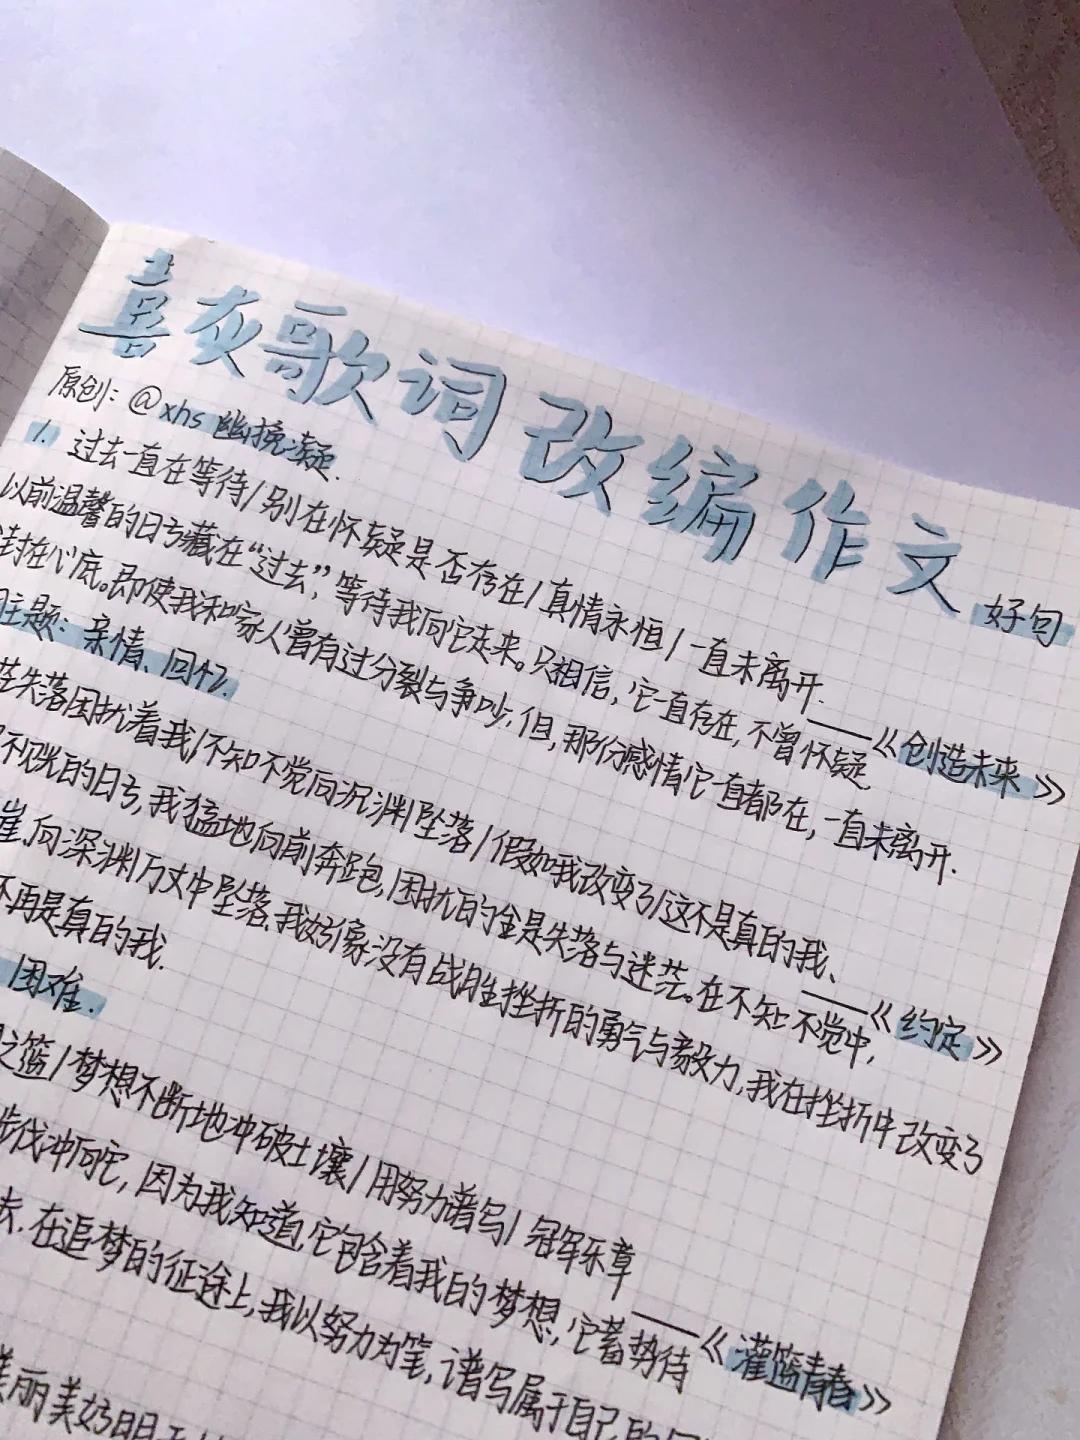 喜灰歌词改编作文
好句
原创：@xhs 幽挽凝.
1. 过去一直在等待/别在怀疑是否存在/真情永恒/一直未离开.
——《创造未来》
以前温馨的日子藏在“过去”，等待我向它走来。只相信，它一直存在，不曾怀疑
封在心底。即使我和家人曾有过分裂与争吵.但，那份感情它一直都在，一直未离开.
主题：亲情、回忆.
失落困扰着我/不知不觉向沉渊坠落/假如我改变了/这不是真的我、
——《约定》
不见光的日子，我猛地向前奔跑，困扰的全是失落与迷茫。在不知不觉中，
崖，向深渊万丈中坠落.我好像没有战胜挫折的勇气与毅力，我在挫折中改变了
不再是真的我.
困难.
之篮/梦想不断地冲破土壤/用努力谱写/冠军乐章
——《灌篮青春》
步伐冲向它，因为我知道，它包含着我的梦想，它蓄势待
去.在追梦的征途上，我以努力为笔，谱写属于自己的
美丽美好明天